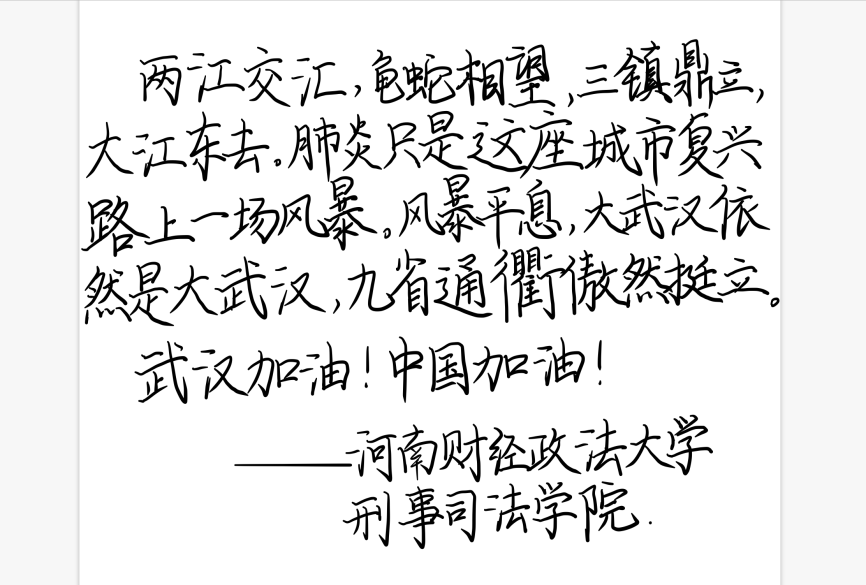 两江交汇,龟蛇相望,三镇鼎立,
大江东去。肺炎只是这座城市复兴
路上一场风暴。风暴平息,大武汉依
然是大武汉,九省通衢傲然挺立。
武汉加油!中国加油!
——河南财经政法大学
刑事司法学院.